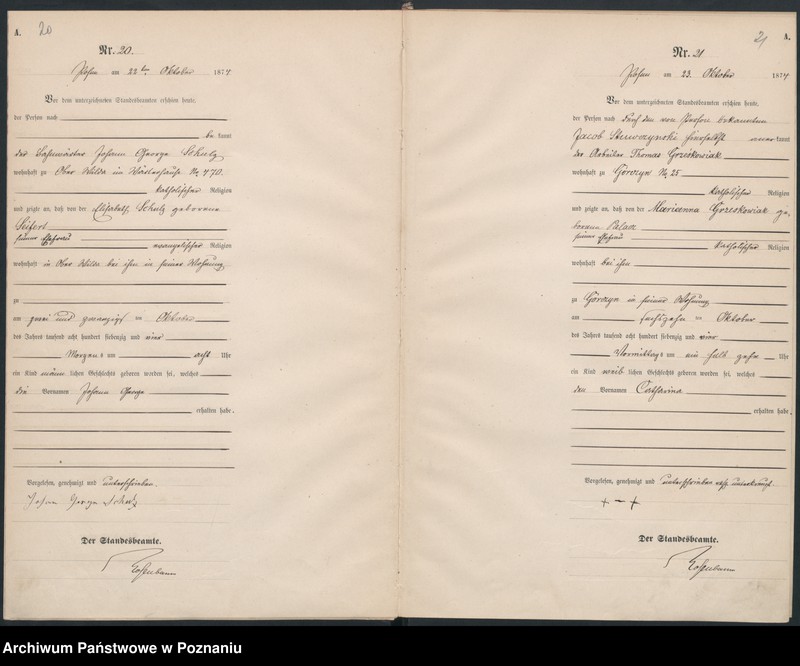 A. 20
Nr. 20.
Posen am 22ten Oktober 1874
Vor dem unterzeichneten Standesbeamten erschien heute,
der Person nach
be kannt
der Johann George Schulz
wohnhaft zu Ober Wilda im No 470.
katholischer Religion
und zeigte an, daß von der Elisabeth Schulz geborene
Seifert
seiner Ehefrau evangelischer Religion
wohnhaft in Ober Wilda bei ihm in seiner Wohnung
zu
am zwei und zwanzigsten Oktober
des Jahres tausend acht hundert siebenzig und vier
Morgens um acht Uhr
ein Kind männ lichen Geschlechts geboren worden sei, welches
die Vornamen Johann George
erhalten habe.
Vorgelesen, genehmigt und unterschrieben.
Johann George Schulz
Der Standesbeamte.
21 A.
Nr. 21
Posen am 23. Oktober 1874
Vor dem unterzeichneten Standesbeamten erschien heute,
der Person nach durch den von Person bekannten
Jacob anerkannt
der Arbeiter Thomas Grzeskowiak
wohnhaft zu Górczyn No 25
katholischer Religion
und zeigte an, daß von der Marianna Grzeskowiak ge,
borenen
seiner Ehefrau katholischer Religion
wohnhaft bei ihm
zu Górczyn in seiner Wohnung
am Oktober
des Jahres tausend acht hundert siebenzig und vier
Vormittags um ein halb zehn Uhr
ein Kind weib lichen Geschlechts geboren worden sei, welches
den Vornamen Catharina
erhalten habe.
Vorgelesen, genehmigt und unterschrieben
+ – +
Der Standesbeamte.
Archiwum Państwowe w Poznaniu